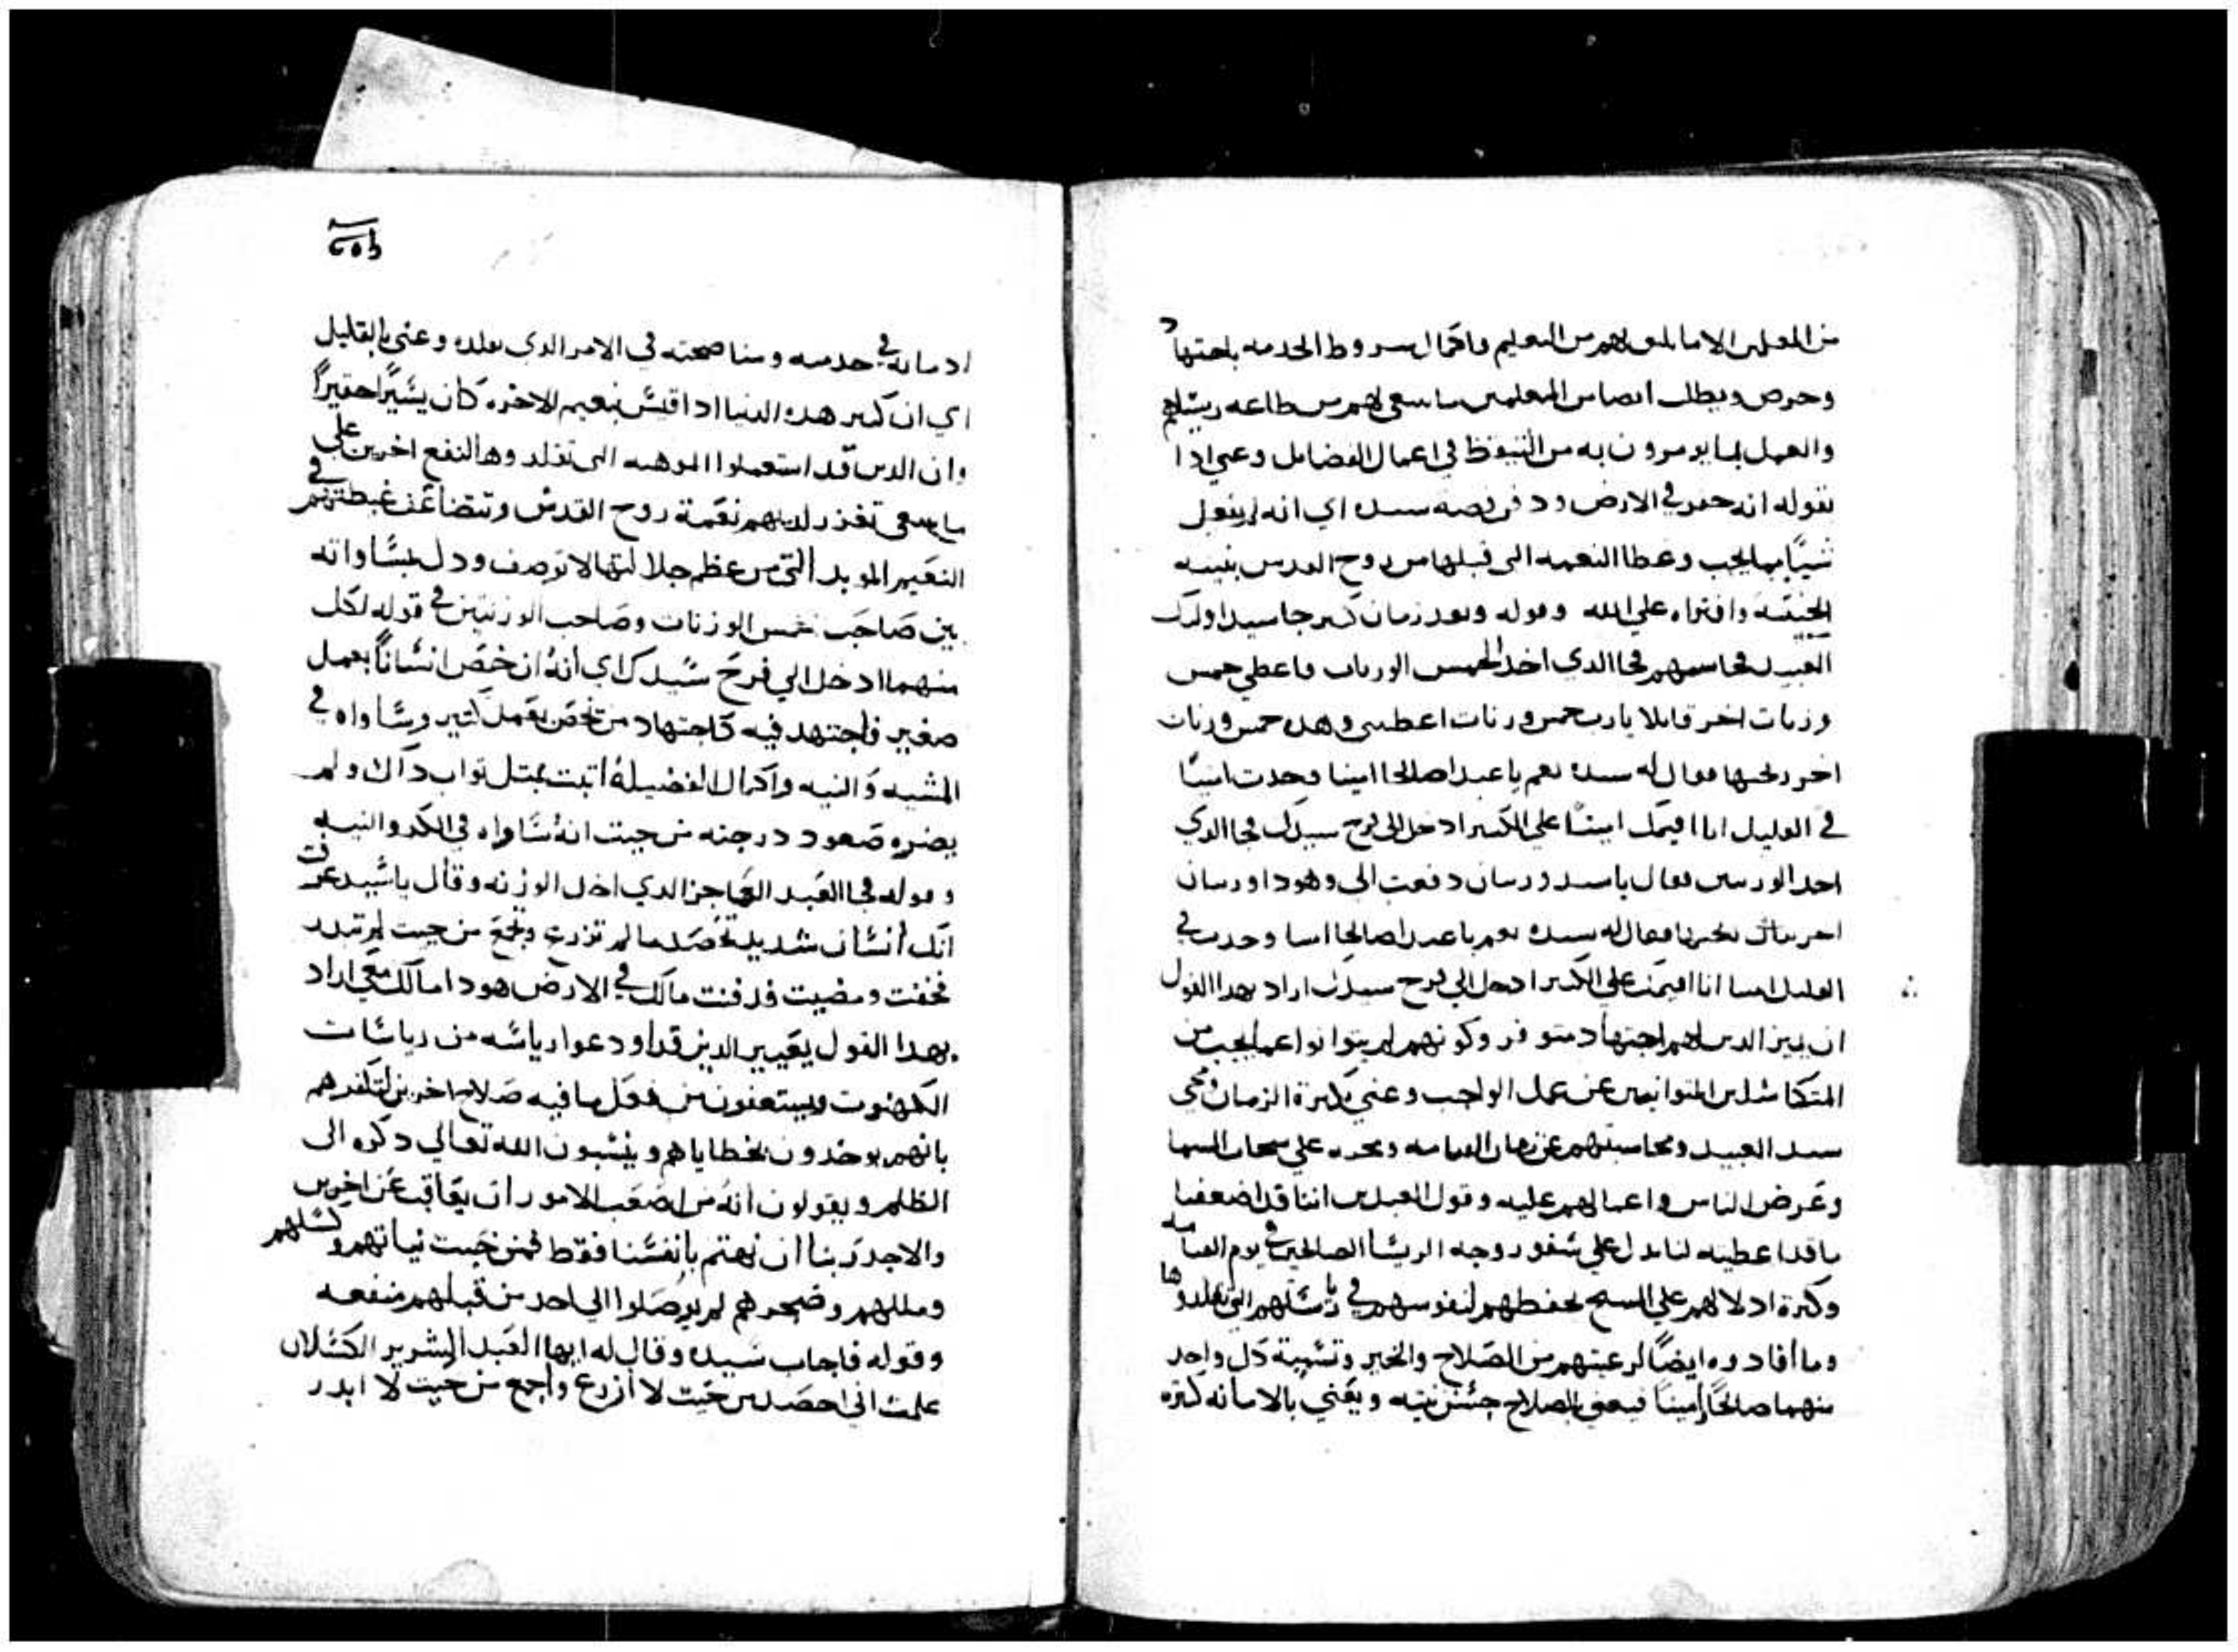 من المعلمين الاما يلمق بهم من التعليم واكمال شروط الخدمه باجتهاد
وحرص ويطلب ايضا من المعلمين ما ينبغي لهم من طاعه ريسهم
والعمل بما يومرون به من التيقوظ في اعمال الفضايل وعني اذا
بقوله انه حفر في الارض ودفن فضه سيده اي انه لم يفعل
شيًا مما يجب وغطا النعمه التي قبلها من روح القدس بنيته
الخبيثه وافتراه علي الله وقوله وبعد زمان كبير جا سيد اوليك
العبيد فحاسبهم فجا الذي اخذ الخمس الوزنات فاعطي خمس
وزنات اخر قايلا يارب خمس وزنات اعطيتني وهده خمس وزنات
اخر ربحتها فقال له سيده نعم يا عبدا صالحا امينا وجدت امينًا
في القليل انا اقيمك امينًا علي الكثير ادخل الي فرح سيدك فجا الدي
اخد الوزنتين فقال ياسيد وزنتان دفعت الي وهودا وزنتان
اخرتان ربحتها فقال له سيده نعم يا عبدا صالحا امينا وجدت في
القليل امينا انا اقيمك علي الكثير ادخل الي فرح سيدك اراد بهدا القول
ان يميز الدين لهم اجتهاد متوفر وكونهم لم يتوانوا عما يجب من
المتكاسلين المتوانيين عن عمل الواجب وعني بكثرة الزمان ومجي
سيد العبيد ومحاسبتهم عن زمان القيامه ومجيه علي سحاب السما
وعرض الناس واعمالهم عليه وقول العبدين اننا قد اضعفنا
ما قد اعطيته لنا يدل علي سفور وجه الريسا الصالحين في يوم القيامه
وكثرة ادلالهم علي المسيح لحفظهم لنفوسهم في رياستهم التي تقلدوها
وما أفادوه ايضًا لرعيتهم من الصلاح والخير وتسمية كل واحد
منهما صالحًا وامينًا فيعني بالصلاح حسن نيته ويعني بالامانه كثرة
ادمانه في خدمته ومناصحته في الامر الدي تقلده وعني بالقليل
اي ان كثير هده الدنيا ادا قيس بنعيم الاخره كان يسيرًا حقيرًا
وان الدين قد استعملوا الموهبه التي تقلدوها لنفع اخرين علي
ما ينبغي تغزر لديهم نعمة روح القدس وتتضاعف غبطتهم في
النعيم الموبد التي من عظم جلالتها لا توصف ودل بمساواته
بين صاحب خمس الوزنات وصاحب الوزنتين في قوله لكل
منهما ادخل الي فرح سيدك اي أنه ان خص انسانًا بعمل
صغير فاجتهد فيه كاجتهاد من تخص بعمل كثير وساواه في
المشيه والنيه واكمال الفضيلة اثبت بمتل تواب داك ولم
يضره صعود درجته من حيت انه ساواه في الكد والنيه
وقوله فجا العبد العاجز الدي اخد الوزنه وقال ياسيد عرفت
انك أنسان شديد تحصد ما لم تزرع وتجمع من حيت لم تبدر
فخفت ومضيت فدفنت مالك في الارض هودا مالك معي اراد
بهدا القول يعيير الدين قد اودعوا رياسه من رياسات
الكهنوت ويستعفون من فعل ما فيه صلاح اخرين لتكفرهم
بانهم يوخدون بخطاياهم وينسبون الله تعالي دكره الي
الظلم ويقولون انه من اصعب الامور ان يعاقب عن اخرين
والاجدر بنا ان نهتم بانفسنا فقط فمن خبيت نياتهم وكسلهم
ومللهم وضجرهم لم يوصلوا الي احد من قبلهم منفعه
وقوله فاجاب سيده وقال له ايها العبد الشرير الكسلان
علمت اني احصد من حيت لا أزرع وأجمع من حيت لا ابدر